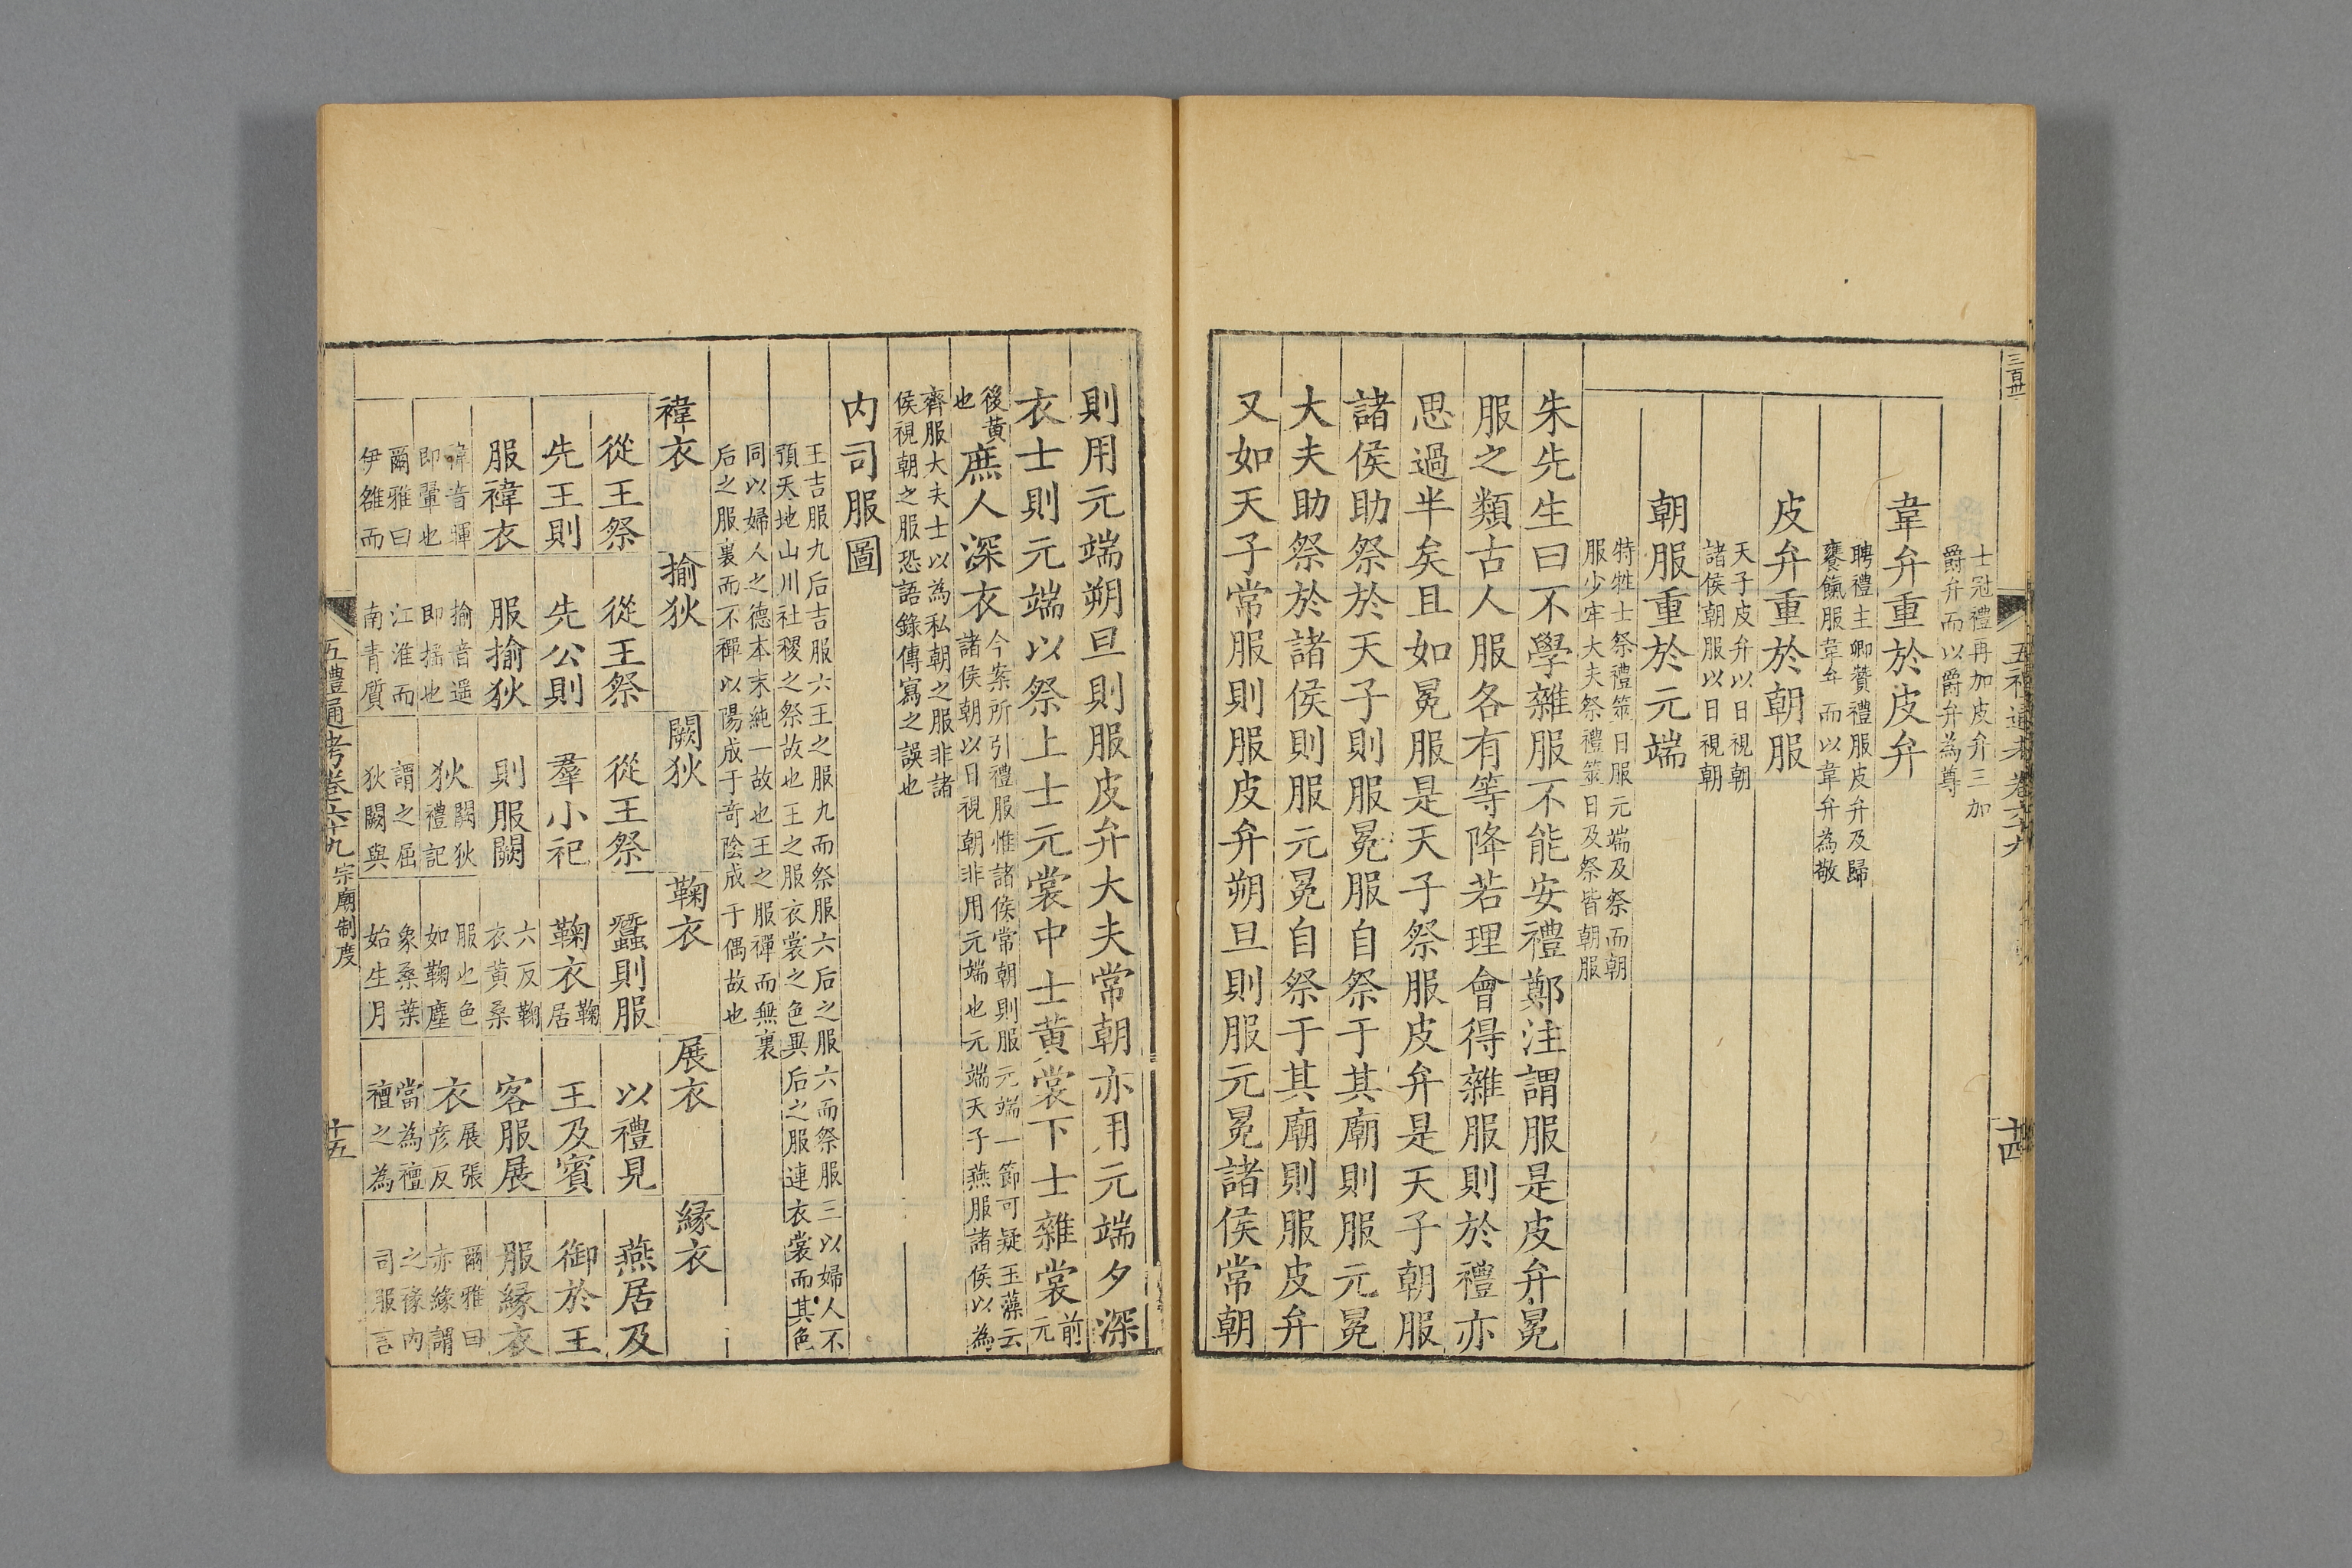 三百卅
五禮通考卷六十九
十四
士冠禮再加皮弁三加
爵弁而以爵弁為尊
韋弁重於皮弁
聘禮主卿贊禮服皮弁及歸
饔餼服韋弁而以韋弁為敬
皮弁重於朝服
天子皮弁以日視朝
諸侯朝服以日視朝
朝服重於元端
特牲士祭禮筮日服元端及祭而朝
服少牢大夫祭禮筮日及祭皆朝服
朱先生曰不學雜服不能安禮鄭注謂服是皮弁冕
服之類古人服各有等降若理會得雜服則於禮亦
思過半矣且如冕服是天子祭服皮弁是天子朝服
諸侯助祭於天子則服冕服自祭于其廟則服元冕
大夫助祭於諸侯則服元冕自祭于其廟則服皮弁
又如天子常服則服皮弁朔旦則服元冕諸侯常朝
則用元端朔旦則服皮弁大夫常朝亦用元端夕深
衣士則元端以祭上士元裳中士黃裳下士雜裳前元
後黃也庶人深衣今案所引禮服惟諸侯常朝則服元端一節可疑玉藻云
諸侯朝以日視朝非用元端也元端天子燕服諸侯以為
齊服大夫士以為私朝之服非諸
侯視朝之服恐語錄傳寫之誤也
內司服圖
王吉服九后吉服六王之服九而祭服六后之服六而祭服三以婦人不
預天地山川社稷之祭故也王之服衣裳之色異后之服連衣裳而其色
同以婦人之德本末純一故也王之服禪而無裏
后之服裏而不禪以陽成于奇陰成于偶故也
褘衣
揄狄
闕狄
鞠衣
展衣
緣衣
從王祭
先王則
服褘衣
褘音翬
即翬也
爾雅曰
伊雒而
從王祭
先公則
服揄狄
揄音遥
即搖也
江淮而
南青質
從王祭
羣小祀
則服闕
狄闕狄
禮記
謂之屈
狄闕與
蠶則服
鞠衣鞠
居
六反鞠
衣黃桑
服也色
如鞠塵
象桑葉
始生月
以禮見
王及賓
客服展
衣展張
彥反
當為襢
襢之為
燕居及
御於王
服緣衣
爾雅曰
亦緣謂
之褖內
司服言
五禮通考卷六十九 宗廟制度
十五